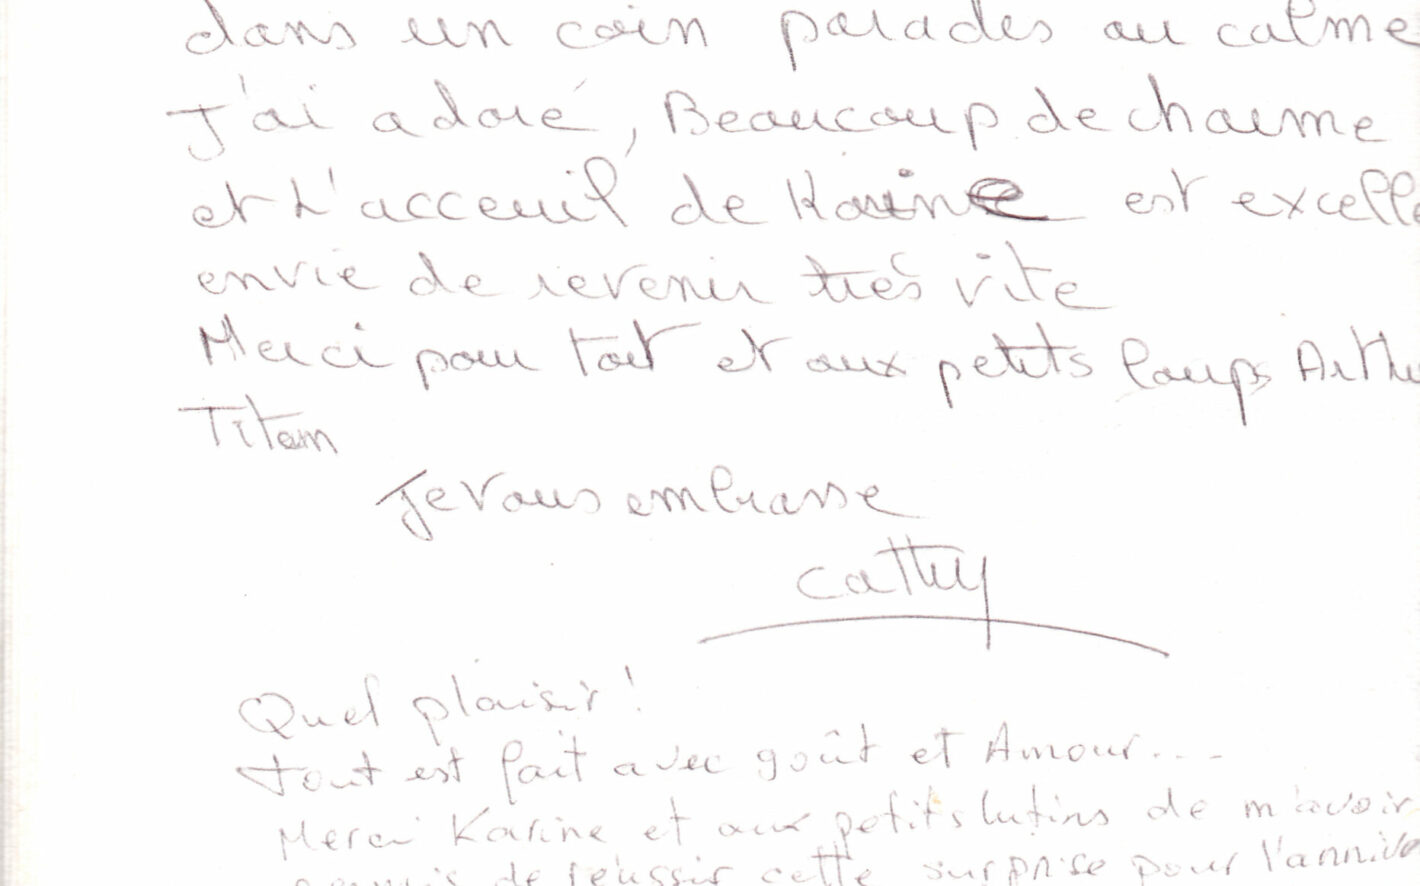 dans un coin parades au calme
J'ai adoré, Beaucoup de charme
et L'acceuil de Karine est excelle
envie de revenir très vite
Merci pour tout et aux petits loups Arthu
Titam
Je vous embrasse
Cathy
Quel plaisir !
Tout est fait avec goût et Amour....
Merci Karine et aux petits lutins de m'avoir
de réussir cette surprise pour l'annive